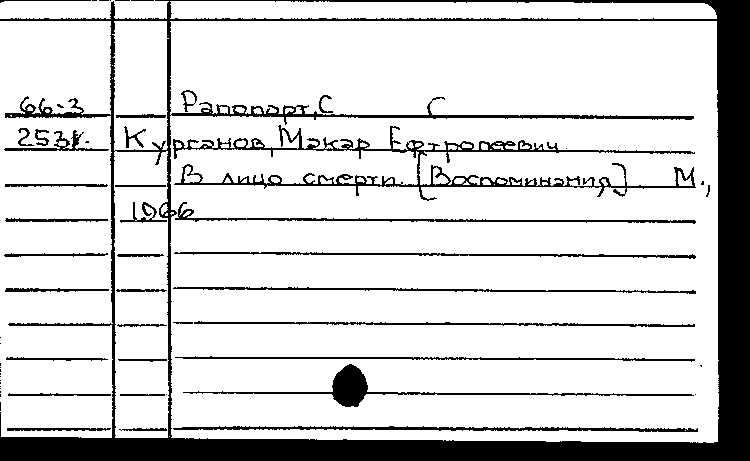 66-3 Рапопорт, С С
253 Курганов, Макар Ефтропеевич
В лицо смерти. [Воспоминания] М.,
1966